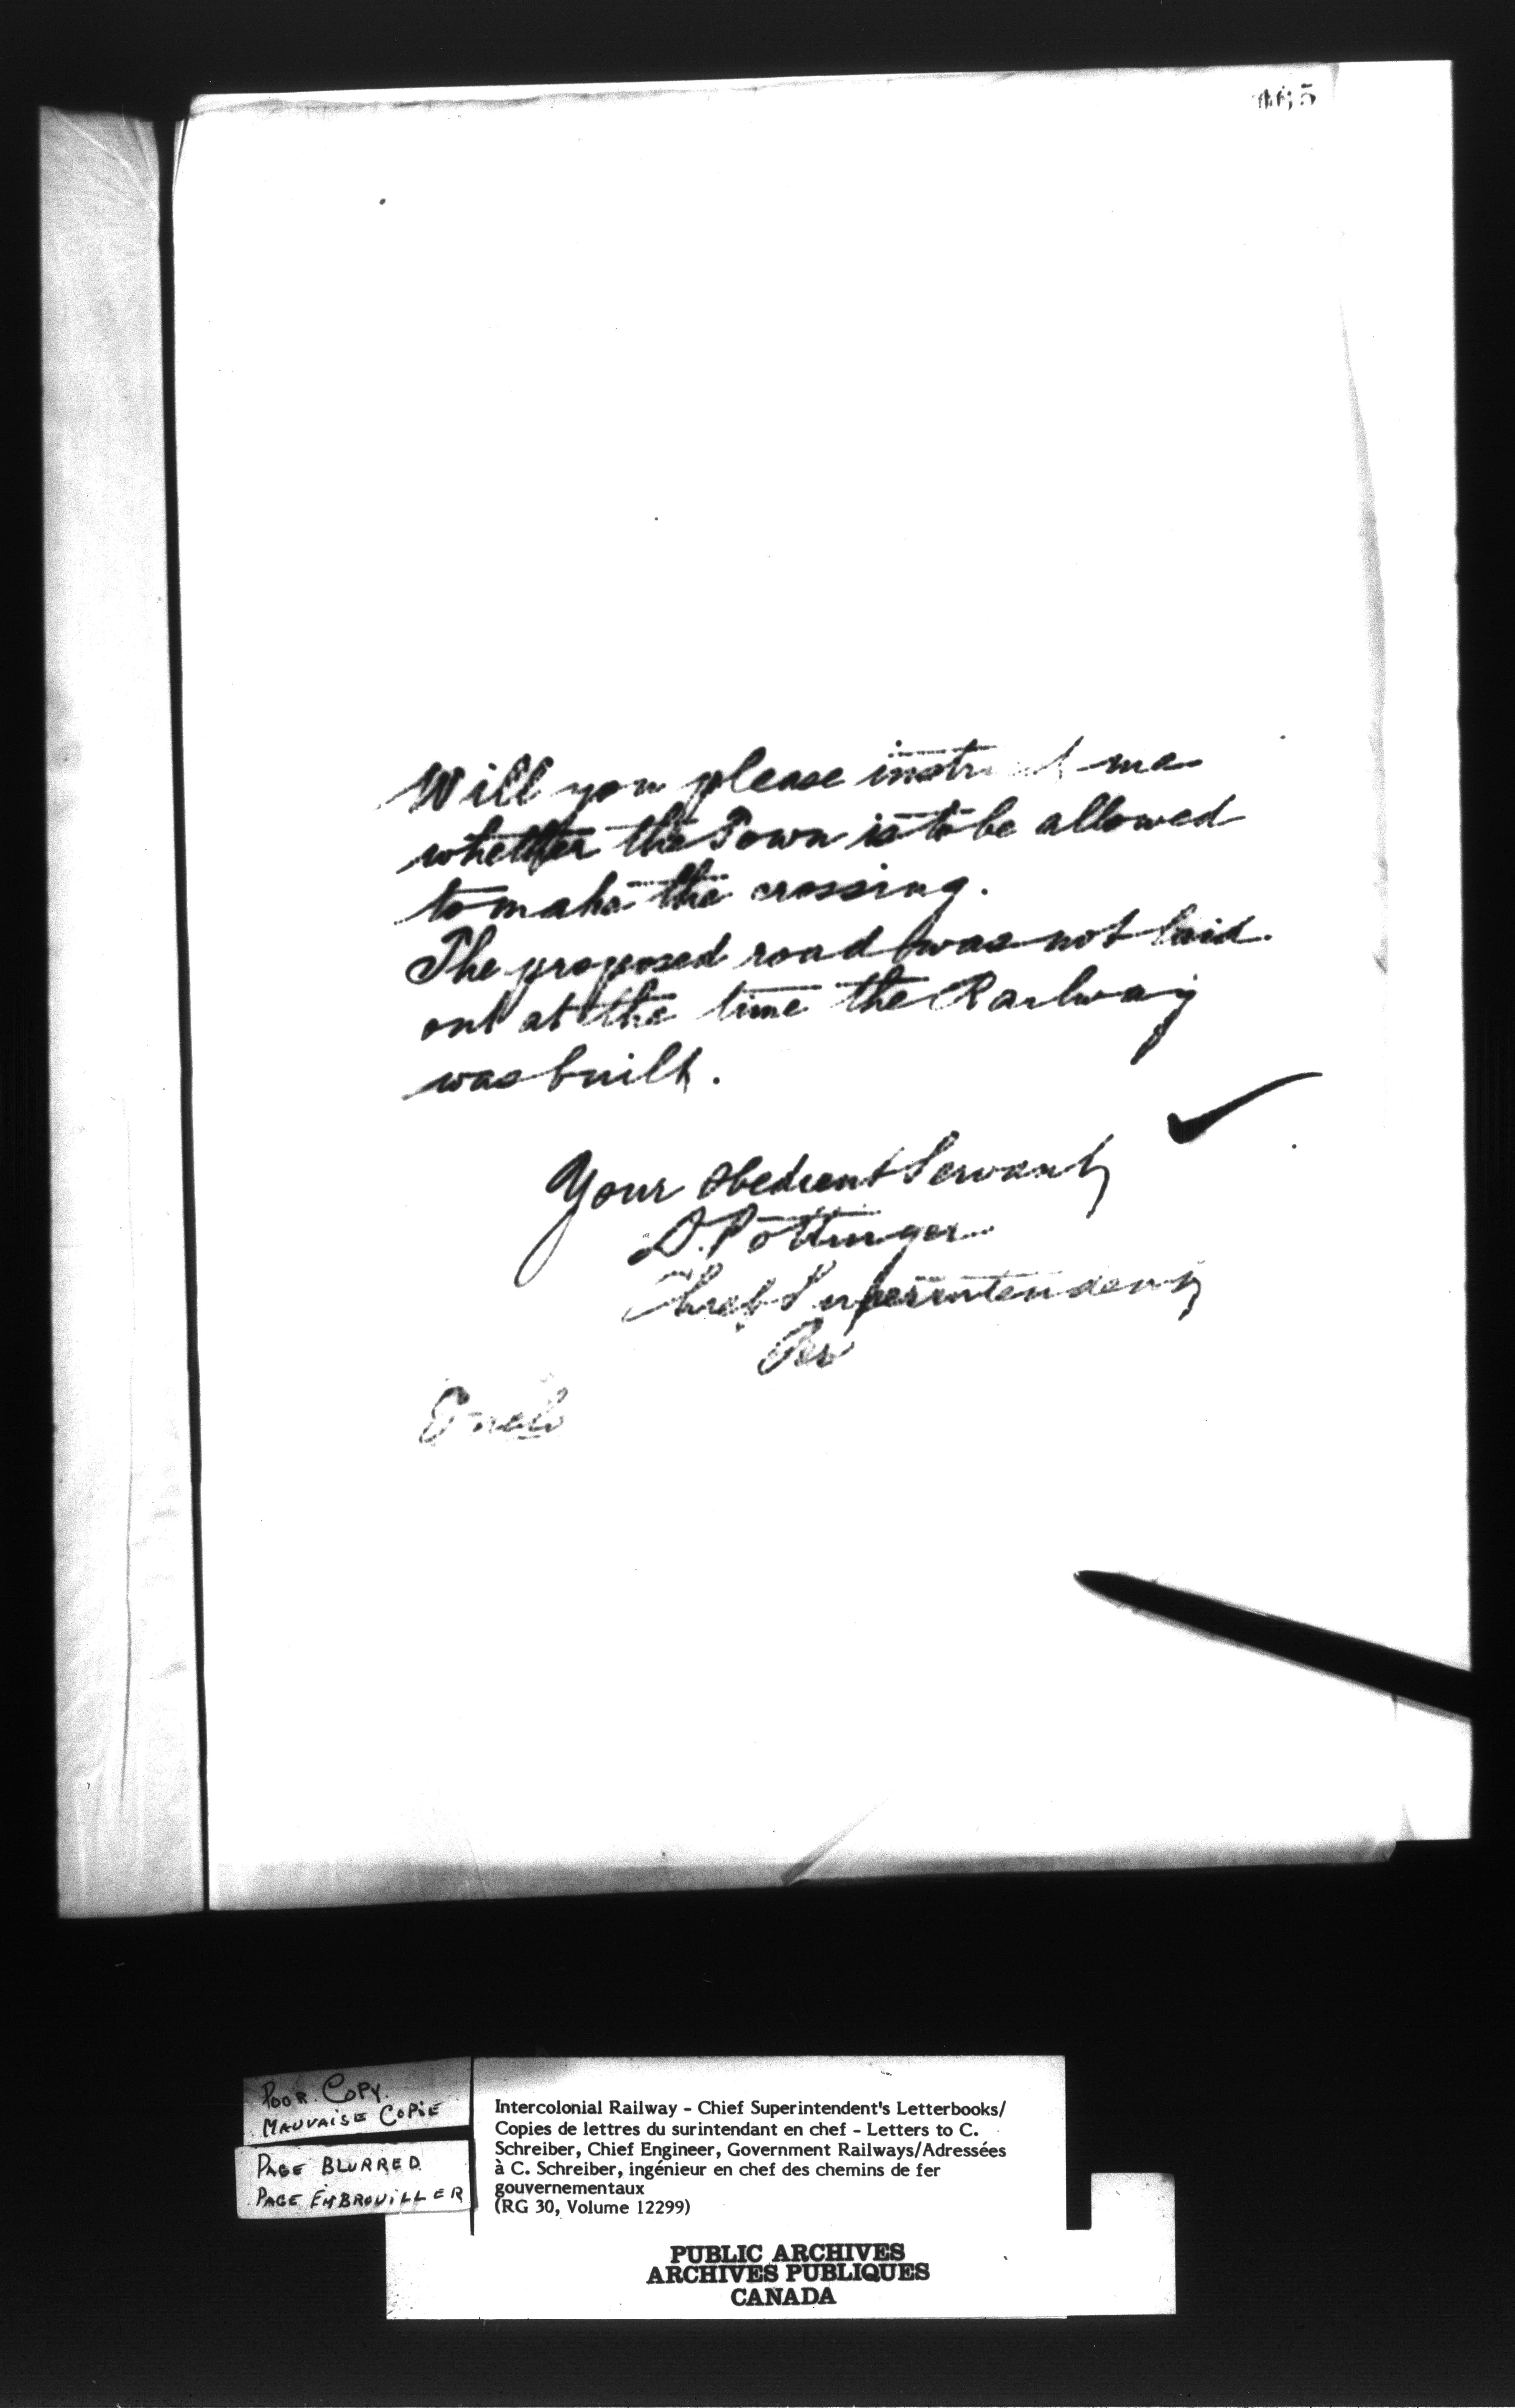 Will you please instruct me
whether the Town is to be allowed
to make the crossing.
The proposed road was not laid
out at the time the Railway
was built.
Your Obedient Servant,
D. Pottinger
Chief Superintendent,
Per
Encls
POOR COPY.
MAUVAISE COPIE
PAGE BLURRED
PAGE EMBROUILLER
Intercolonial Railway - Chief Superintendent's Letterbooks/
Copies de lettres du surintendant en chef - Letters to C.
Schreiber, Chief Engineer, Government Railways/Adressées
à C. Schreiber, ingénieur en chef des chemins de fer
gouvernementaux
(RG 30, Volume 12299)
PUBLIC ARCHIVES
ARCHIVES PUBLIQUES
CANADA